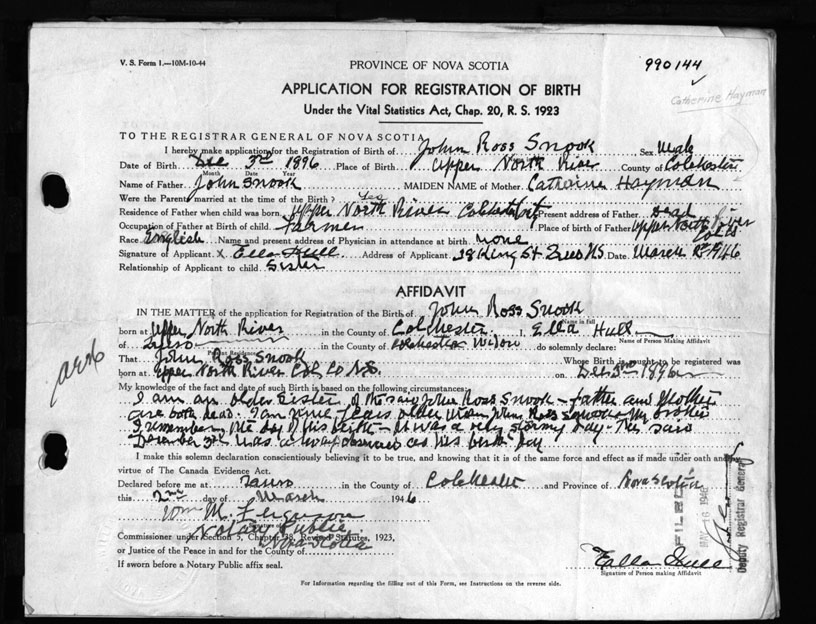 V. S. Form 1.—10M-10-44
PROVINCE OF NOVA SCOTIA
990144
APPLICATION FOR REGISTRATION OF BIRTH
Catherine Hayman
Under the Vital Statistics Act, Chap. 20, R. S. 1923
TO THE REGISTRAR GENERAL OF NOVA SCOTIA
I hereby make application for the Registration of Birth of John Ross Snook Sex Male
Date of Birth Dec 3rd 1896 Place of Birth Upper North River County of Colchester
Month Date Year
Name of Father John Snook MAIDEN NAME of Mother Catharine Hayman
Were the Parent married at the time of the Birth? Yes
Residence of Father when child was born Upper North River Present address of Father Dead
Occupation of Father at Birth of child Farmer Place of birth of Father Upper North River
Race English Name and present address of Physician in attendance at birth none
Signature of Applicant x Ella Hull Address of Applicant 28 King St Truro N.S. Date March 1946
Relationship of Applicant to child Sister
AFFIDAVIT
IN THE MATTER of the application for Registration of the Birth of John Ross Snook
Name in full
born at Upper North River in the County of Colchester I, Ella Hull
Name of Person Making Affidavit
of Truro in the County of Colchester Widow do solemnly declare:
Present Residence
That John Ross Snook Whose Birth is sought to be registered was
born at Upper North River Col Co N.S. on Dec 3rd 1896
My knowledge of the fact and date of such Birth is based on the following circumstances:
I am an older sister of the said John Ross Snook - father and Mother
are both dead. I am nine years older than John Ross Snook My brother
I remember the day of his birth - It was a very stormy day - The said
December 3rd was always observed as his birth day
I make this solemn declaration conscientiously believing it to be true, and knowing that it is of the same force and effect as if made under oath and by
virtue of The Canada Evidence Act.
Declared before me at Truro in the County of Colchester and Province of Nova Scotia
this 2nd day of March 1946
Wm M. Ferguson
Notary Public
Nova Scotia
Commissioner under Section 5, Chapter 38, Revised Statutes, 1923,
or Justice of the Peace in and for the County of
If sworn before a Notary Public affix seal.
Ella Hull
Signature of Person making Affidavit
For Information regarding the filling out of this Form, see Instructions on the reverse side.
FILED
1946
Deputy Registrar General